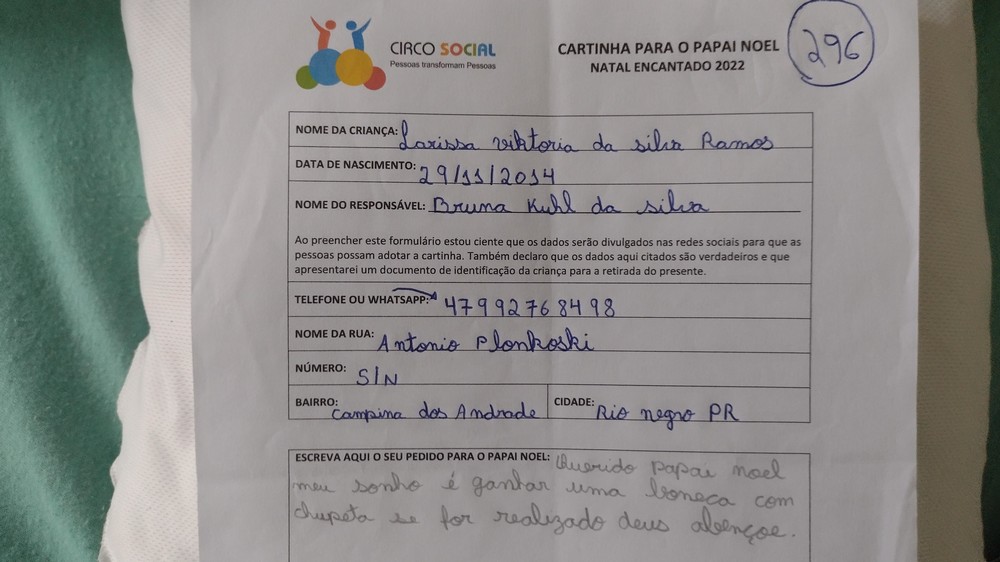 CIRCO SOCIAL
Pessoas transformam Pessoas
CARTINHA PARA O PAPAI NOEL
NATAL ENCANTADO 2022
296
NOME DA CRIANÇA: Larissa viktoria da silva Ramos
DATA DE NASCIMENTO: 29/11/2014
NOME DO RESPONSÁVEL: Bruna Kuhl da silva
Ao preencher este formulário estou ciente que os dados serão divulgados nas redes sociais para que as
pessoas possam adotar a cartinha. Também declaro que os dados aqui citados são verdadeiros e que
apresentarei um documento de identificação da criança para a retirada do presente.
TELEFONE OU WHATSAPP: 47992768498
NOME DA RUA: Antonio Plonkoski
NÚMERO: S/N
BAIRRO: Campina dos Andrade CIDADE: Rio negro PR
ESCREVA AQUI O SEU PEDIDO PARA O PAPAI NOEL: Querido papai noel
meu sonho é ganhar uma boneca com
chupeta se for realizado deus abençoe.